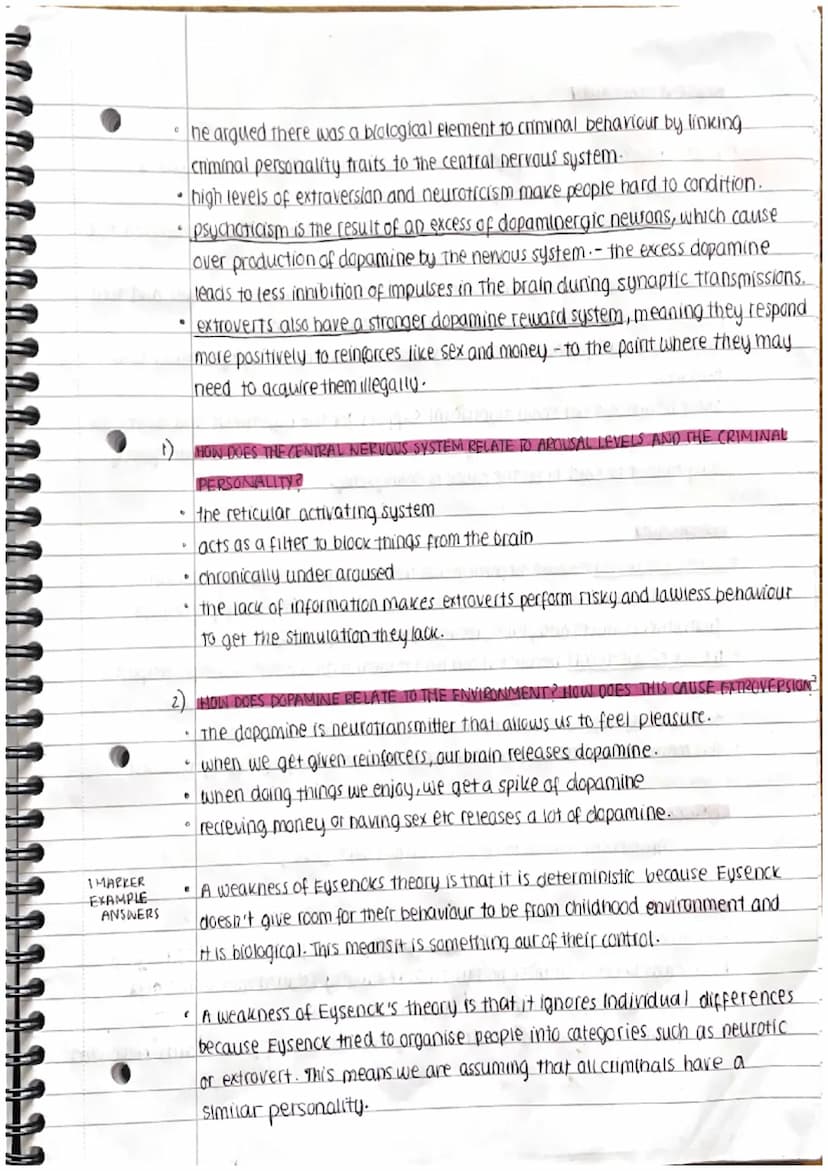 • he argued there was a biological element to criminal behaviour by linking
criminal personality traits to the central nervous system.
• high levels of extraversion and neuroticism make people hard to condition.
• psychoticism is the result of an excess of dopaminergic neurons, which cause
over production of dopamine by the nervous system. - the excess dopamine
leads to less inhibition of impulses in the brain during synaptic transmissions.
• extroverts also have a stronger dopamine reward system, meaning they respond
more positively to reinforces like sex and money - to the point where they may
need to acquire them illegally.
1) HOW DOES THE CENTRAL NERVOUS SYSTEM RELATE TO AROUSAL LEVELS AND THE CRIMINAL
PERSONALITY?
• the reticular activating system
• acts as a filter to block things from the brain
• chronically under aroused
• the lack of information makes extroverts perform risky and lawless behaviour
to get the stimulation they lack.
2) HOW DOES DOPAMINE RELATE TO THE ENVIRONMENT? HOW DOES THIS CAUSE EXTROVERSION?
• the dopamine is neurotransmitter that allows us to feel pleasure.
• when we get given reinforcers, our brain releases dopamine.
• when doing things we enjoy, we get a spike of dopamine
• recieving money or having sex etc releases a lot of dopamine.
1 MARKER
EXAMPLE
ANSWERS
• A weakness of Eysencks theory is that it is deterministic because Eysenck
doesn't give room for their behaviour to be from childhood environment and
it is biological. This means it is something out of their control.
• A weakness of Eysenck's theory is that it ignores individual differences
because Eysenck tried to organise people into categories such as neurotic
or extrovert. This means we are assuming that all criminals have a
similar personality.